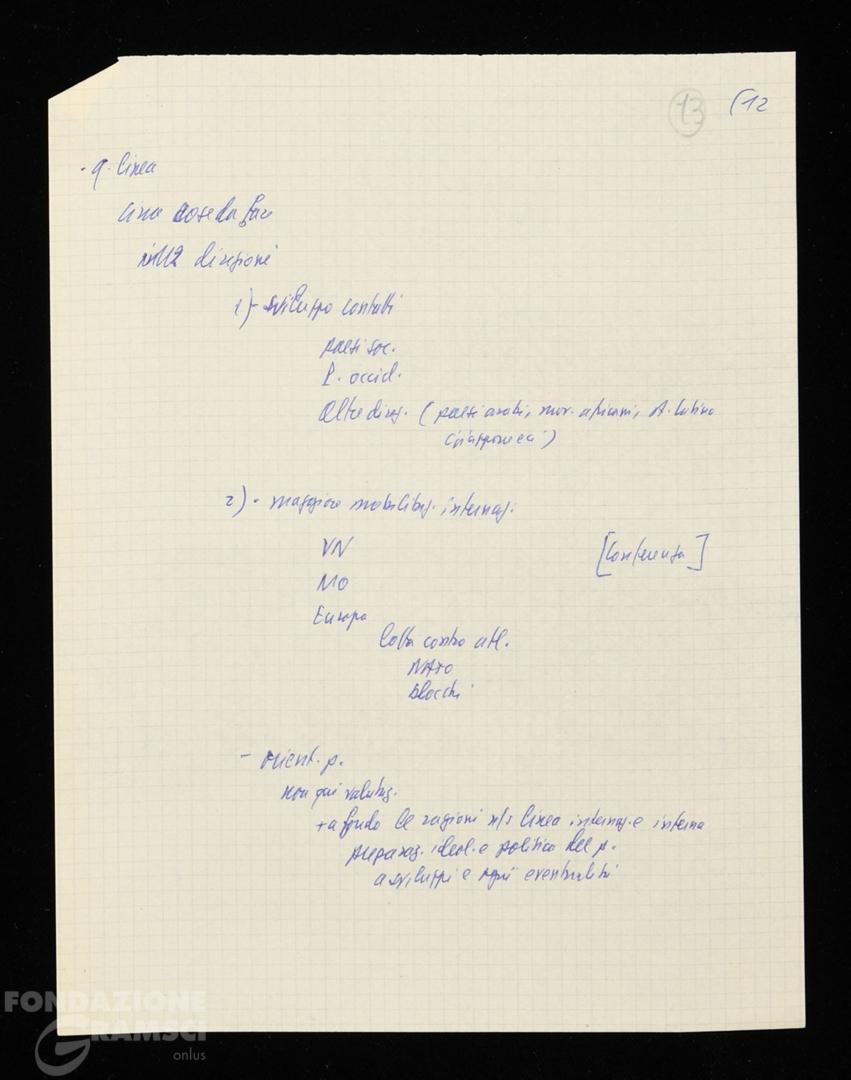 13 (12
- q. linea
cose da fare
direzioni
1) - sviluppo contatti
paesi soc.
P. occid.
Altre direz. (paesi arabi, mov. africani, A. Latina
giapponesi)
2) - maggiore mobilitaz. internaz.
VN
[Conferenza]
MO
Europa
lotta contro atl.
NATO
blocchi
- orient. p.
non qui valutaz.
+ a fondo le ragioni n/s linea internaz. e interna
preparaz. ideol. e politica del p.
a sviluppi e ogni eventualità
FONDAZIONE
GRAMSCI
onlus